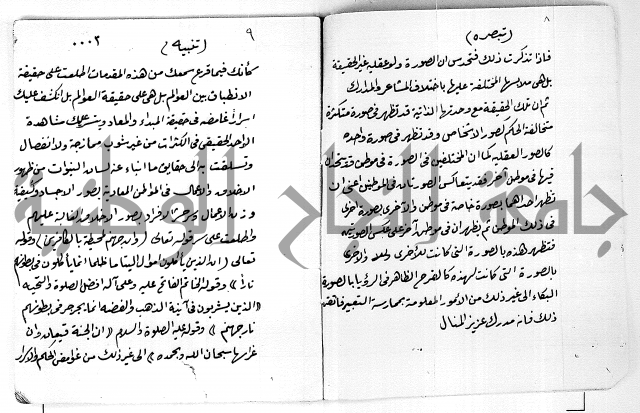 ٨
(تبصره)
فاذا تذكرت ذلك فتحدس ان الصورة ولو عقليه غير الحقيقة
بل هى ملابسها المختلفة عليها باختلاف المشاعر والمدارك
ثم ان تلك الحقيقة مع وحدتها الذاتية قد تظهر فى صورة متكثرة
متخالفة الحكم لصور الاشخاص وقد تظهر فى صورة واحده
كالصور العقليه كما ان المختلفين فى الصورة فى موطن قد يتحدان
فيها فى موطن آخر فقد يتعاكس الصورتان فى الموطنين اعنى ان
تظهر احداهما بصورة خاصة فى موطن والاخرى بصورة اخرى
فى ذلك الموطن ثم يظهران فى موطن آخر على عكس الصورتين
فتظهر هذه بالصورة التى كانت للاخرى اولا والاخرى
بالصورة التى كانت لهذه كالفرح الظاهر فى الرؤيا بالصورة
البكاء الى غير ذلك من الامور المعلومة بممارسة التعبير فافهم
ذلك فانه مدرك عزيز المنال
٩
(تنبيه) ٠٠٠٢
كأنك فيما قرع سمعك من هذه المقدمات اطلعت على حقيقة
الانطباق بين العوالم بل هى على حقيقة العوالم بل انكشف عليك
اسرار غامضه فى حقيقة المبداء والمعاد وتيسر لك مشاهدة
الواحد الحقيقى فى الكثرات من غير شوب ممازجة ولا انفصال
وتسلقت به الى حقايق ما انباء عنه لسان النبوات من ظهور
الاخلاق والاعمال فى المواطن المعادية بصور الاجساد وكيفية
وزن الاعمال وحشر الافراد بصور الاخلاق الغالبة عليهم
واطلعت على سر قوله تعالى (وان جهنم لمحيطة بالكافرين) وقوله
تعالى (ان الذين يأكلون اموال اليتاما ظلما انما يأكلون فى بطونهم
نارا) وقوله الخاتم الفاتح عليه وعلى آله افضل الصلوة والتحيه
«الذين يشربون فى آنية الذهب والفضه انما يجرجر فى بطونهم
نار جهنم» وقوله عليه الصلوة والسلام «ان الجنة قيعان وان
غراسها سبحان الله وبحمده» الى غير ذلك من غوامض الحكم والاسرار
جامعة النجاح الوطنية